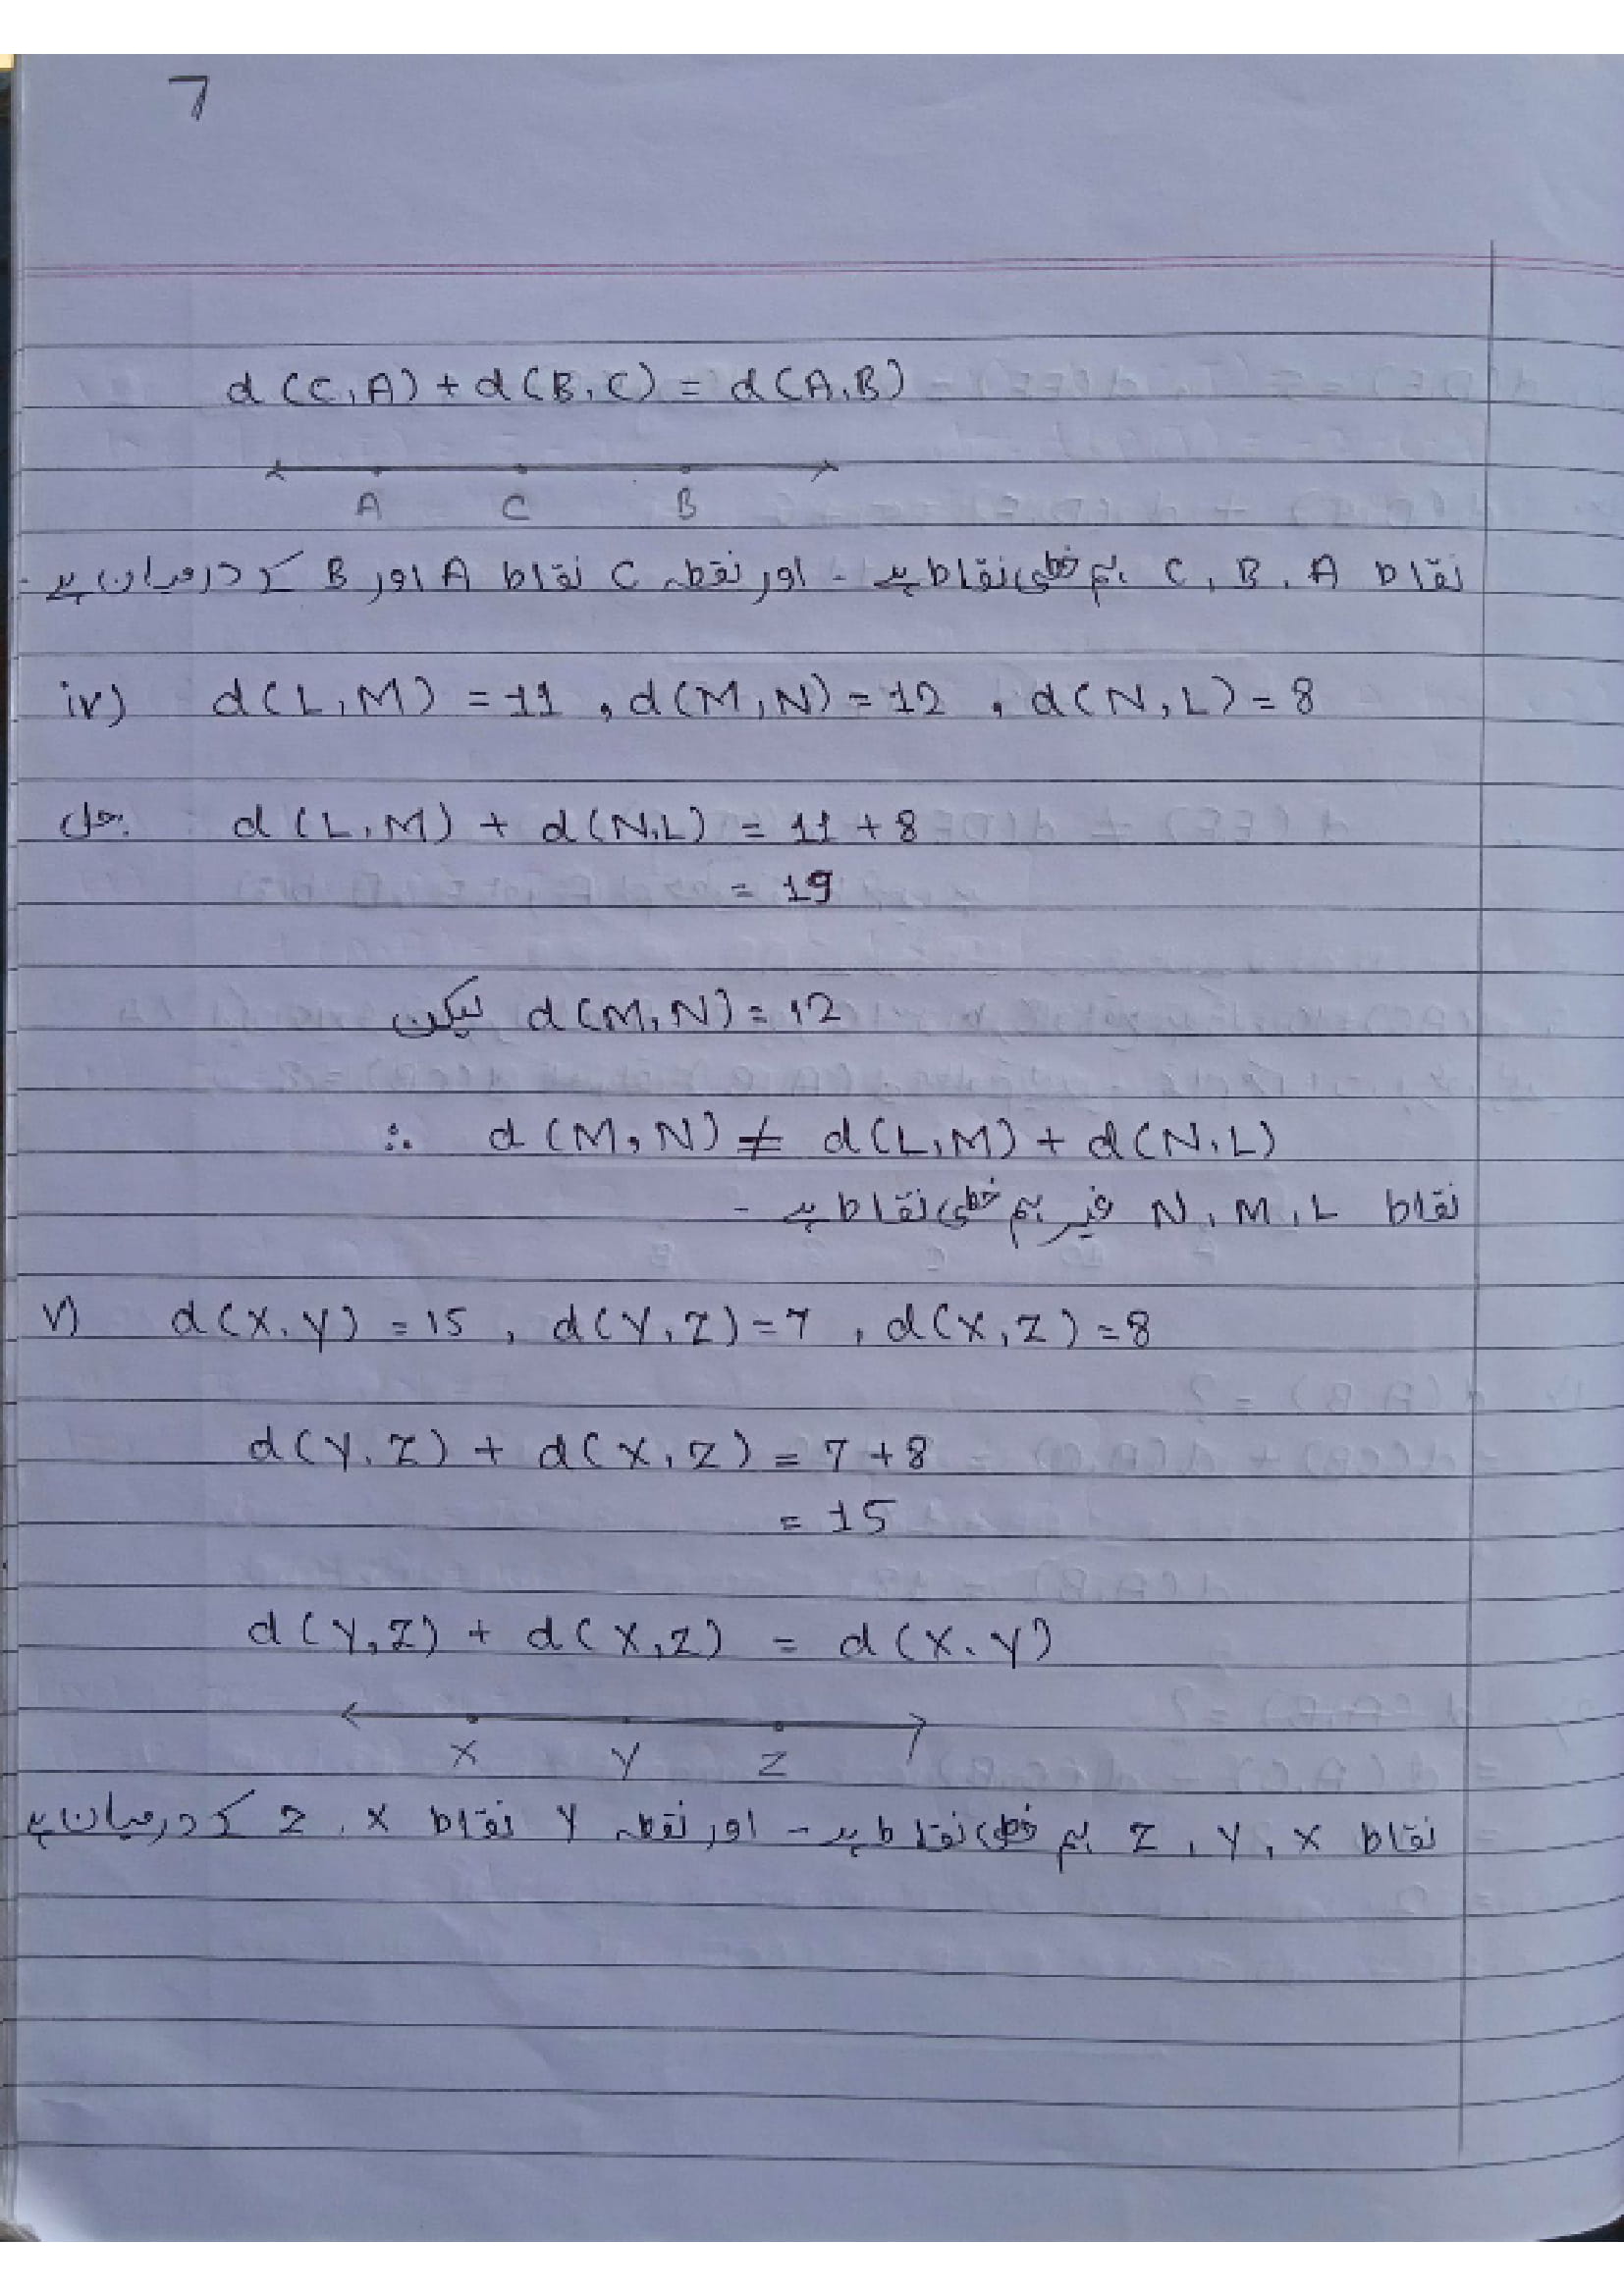 7
d (C, A) + d (B, C) = d (A, B)
A C B
نقاط A ، B ، C ہم خطی نقاط ہے - اور نقطہ C نقاط A اور B کے درمیان ہے -
iv) d (L, M) = 11 , d (M, N) = 12 , d (N, L) = 8
حل: d (L, M) + d (N, L) = 11 + 8
= 19
لیکن d (M, N) = 12
∴ d (M, N) ≠ d (L, M) + d (N, L)
نقاط L ، M ، N غیر ہم خطی نقاط ہے -
v) d (X, Y) = 15 , d (Y, Z) = 7 , d (X, Z) = 8
d (Y, Z) + d (X, Z) = 7 + 8
= 15
d (Y, Z) + d (X, Z) = d (X, Y)
X Y Z
نقاط X ، Y ، Z ہم خطی نقاط ہے - اور نقطہ Y نقاط X ، Z کے درمیان ہے